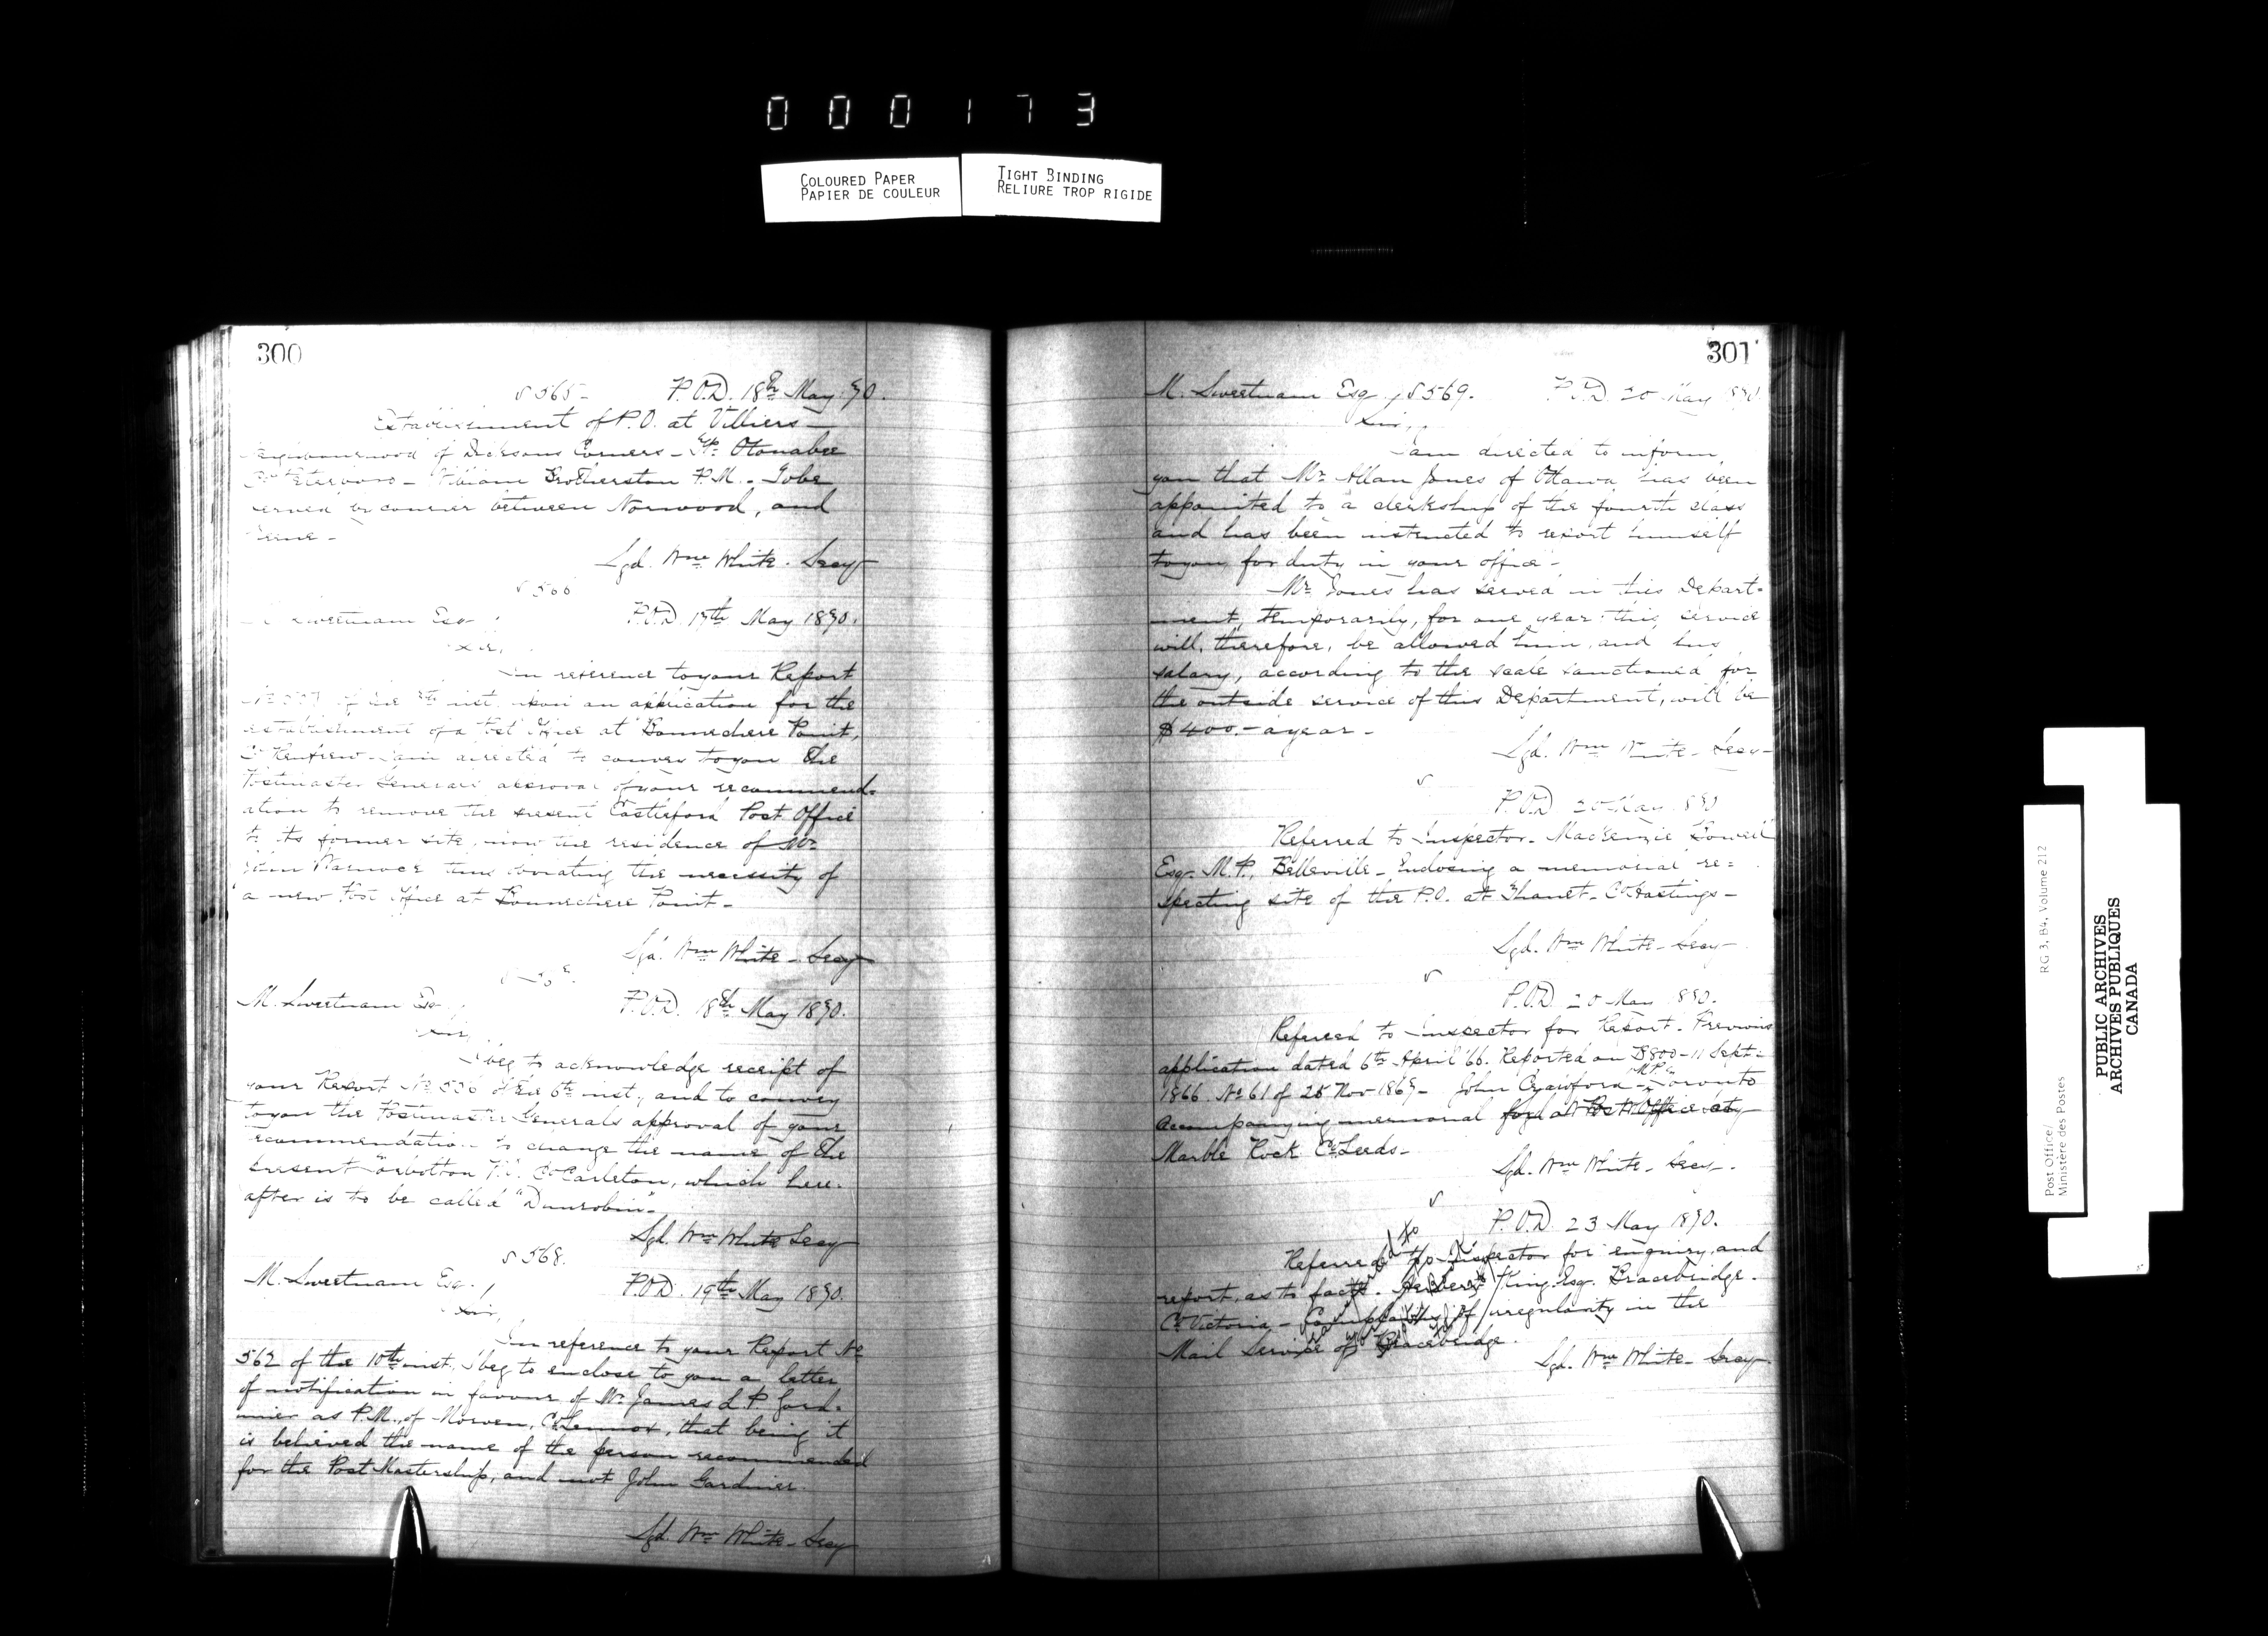 0 0 0 1 7 3
COLOURED PAPER
PAPIER DE COULEUR
TIGHT BINDING
RELIURE TROP RIGIDE
300
565 - P.O.D. 18th May 70.
Establishment of P.O. at Villiers -
neighbourhood of Dicksons Corners - Tp. Otonabee
Co Peterboro - William Brotherston P.M. - To be
served by courier between Norwood, and
Keene -
Sgd. Wm White - Secy
566
M. Sweetnam Esq
P.O.D. 17th May 1870.
Sir,
In reference to your Report
of the inst. upon an application for the
establishment of a Post Office at Bonnechere Point,
Co Renfrew - I am directed to convey to you the
Postmaster Generals approval of your recommend=
ation to remove the present Castleford Post Office
to its former site, now the residence of Mr
John Warnock thus obviating the necessity of
a new Post Office at Bonnechere Point -
Sgd. Wm White - Secy
M. Sweetnam Esq
P.O.D. 18th May 1870.
Sir,
I beg to acknowledge receipt of
your Report No 556 of the 6th inst., and to convey
to you the Postmaster Generals approval of your
recommendation to change the name of the
present Torbolton P.O. Co Carleton, which here-
after is to be called "Dunrobin" -
Sgd. Wm White Secy
568.
M. Sweetnam Esq.
P.O.D. 19th May 1870.
Sir,
In reference to your Report No
562 of the 10th inst. I beg to enclose to you a letter
of notification in favour of Mr James L.P. Gord-
inier as P.M. of Morven, Co Lennox, that being it
is believed the name of the person recommended
for the Post Mastership, and not John Gardiner.
Sgd. Wm White - Secy
301
M. Sweetnam Esq 569. P.O.D. 20 May 1870.
Sir,
I am directed to inform
you that Mr Allan Jones of Ottawa has been
appointed to a clerkship of the fourth class
and has been instructed to report himself
to you for duty in your office -
Mr Jones has served in this Depart=
ment, temporarily, for one year: this service
will, therefore, be allowed him, and his
salary, according to the scale sanctioned for
the outside service of this Department, will be
$400. - a year -
Sgd. Wm White - Secy -
P.O.D. 20 May 1870
Referred to Inspector - MacKenzie Bowell
Esq. M.P., Belleville - Enclosing a memorial re=
specting site of the P.O. at Thanet - Co Hastings -
Sgd. Wm White - Secy -
P.O.D. 20 May 1870.
Referred to Inspector for Report. Previous
application dated 6th April 66. Reported on B800 - 11 Sept=
1866. No 61 of 25 Nov 1869 - John Crawford - M.P. Toronto
Accompanying memorial for a Post Office at
Marble Rock Co Leeds -
Sgd. Wm White - Secy -.
P.O.D. 23 May 1870.
Referred to Inspector for enquiry, and
report, as to facts. King Esq. Bracebridge.
Co Victoria - Complaining of irregularity in the
Mail Service of Bracebridge.
Sgd. Wm White - Secy -
Post Office/ RG 3, B4, Volume 212
Ministère des Postes
PUBLIC ARCHIVES
ARCHIVES PUBLIQUES
CANADA